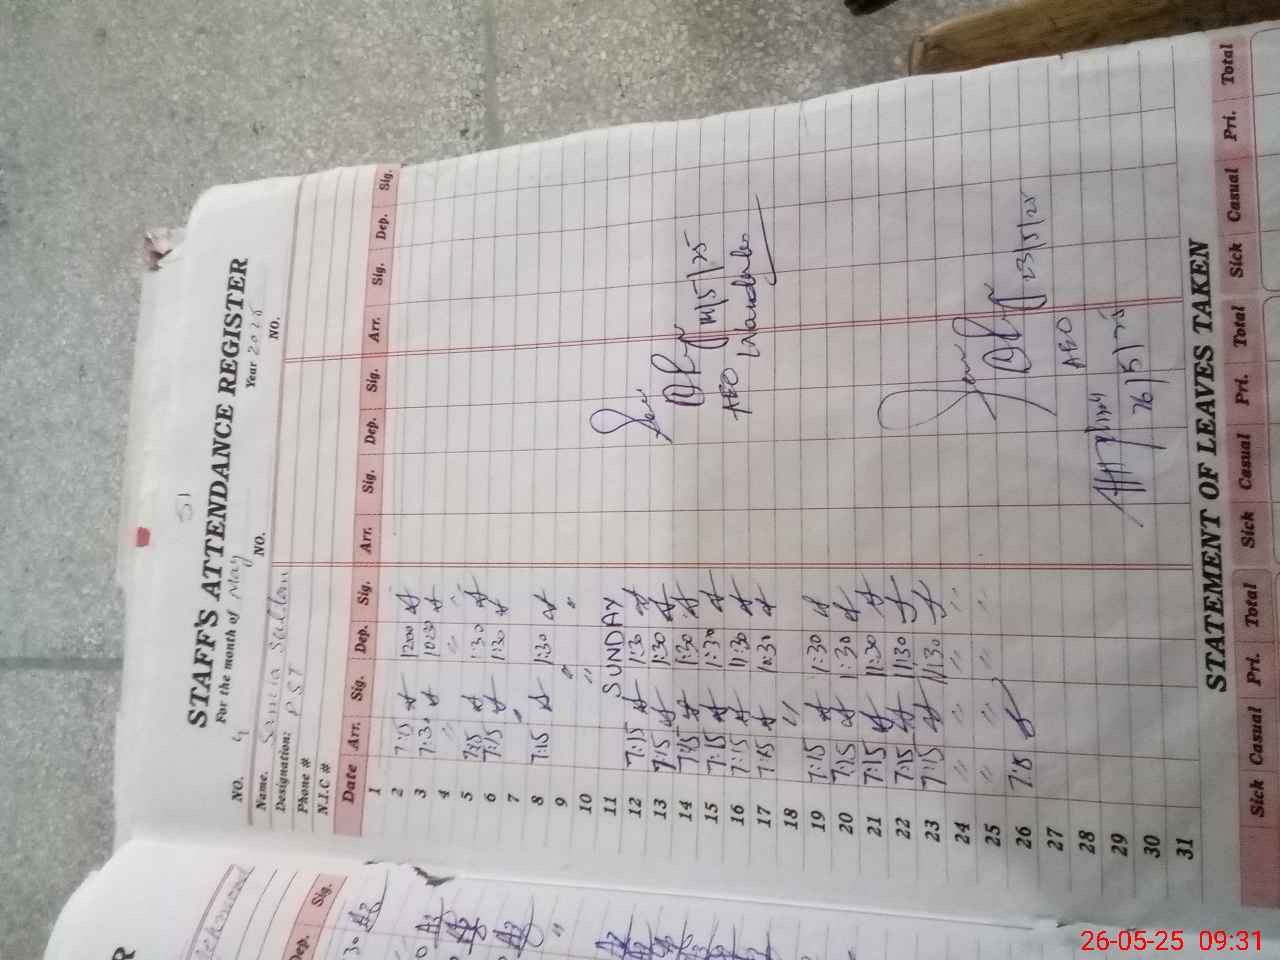 51
STAFF'S ATTENDANCE REGISTER
For the month of May Year 2025
NO. 4 NO. NO.
Name. Samia Sultan
Designation: PST
Phone #
N.I.C #
Date Arr. Sig. Dep. Sig. Arr. Sig. Dep. Sig. Arr. Sig. Dep. Sig.
1
2 7:15 12:00
3 7:30 10:30
4 〃 〃 〃
5 7:15 1:30
6 7:15 1:30
7 〃
8 7:15 1:30
9 〃 〃
10 〃
11 SUNDAY
12 7:15 1:30
13 7:15 1:30
14 7:15 1:30
15 7:15 1:30
16 7:15 11:30
17 7:15 10:30
18 〃
19 7:15 11:30
20 7:15 11:30
21 7:15 11:30
22 7:15 11:30
23 7:15 11:30
24 〃 〃 〃 〃
25 〃 〃 〃 〃
26 7:15
27
28
29
30
31
14/5/25
AEO
23/5/25
AEO
26/5/25
STATEMENT OF LEAVES TAKEN
Sick Casual Pri. Total Sick Casual Pri. Total Sick Casual Pri. Total
Dep. Sig.
26-05-25 09:31